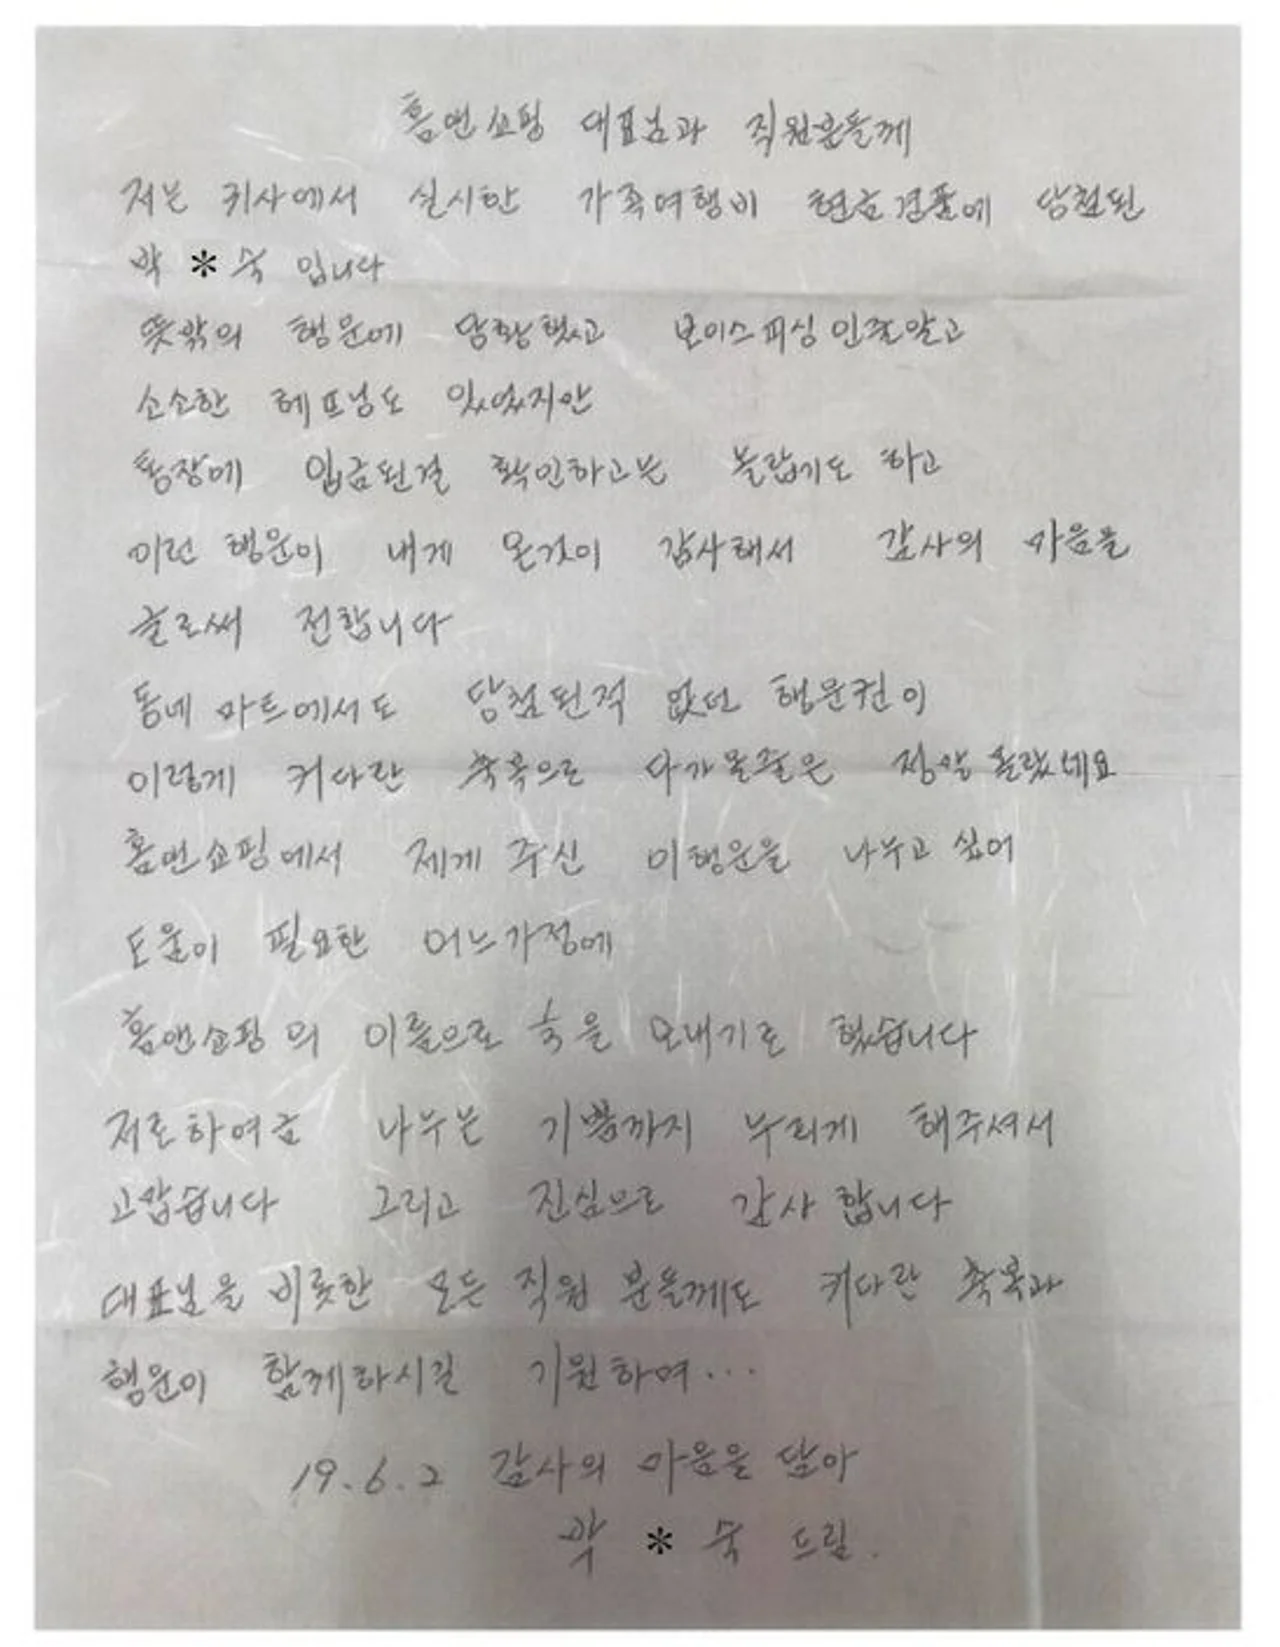 홈앤쇼핑 대표님과 직원분들께
저는 귀사에서 실시한 가족여행비 현금경품에 당첨된
박 * 숙 입니다
뜻밖의 행운에 당황했고 보이스피싱인줄알고
소소한 헤프닝도 있었지만
통장에 입금된걸 확인하고는 놀랍기도 하고
이런 행운이 내게 온것이 감사해서 감사의 마음을
글로써 전합니다
동네 마트에서도 당첨된적 없던 행운권이
이렇게 커다란 축복으로 다가올줄은 정말 몰랐네요
홈앤쇼핑에서 제게 주신 이행운을 나누고 싶어
도움이 필요한 어느가정에
홈앤쇼핑의 이름으로 쌀을 보내기로 했습니다
저로하여금 나누는 기쁨까지 누리게 해주셔서
고맙습니다 그리고 진심으로 감사합니다
대표님을 비롯한 모든 직원 분들께도 커다란 축복과
행운이 함께하시길 기원하며...
19.6.2 감사의 마음을 담아
박 * 숙 드림.